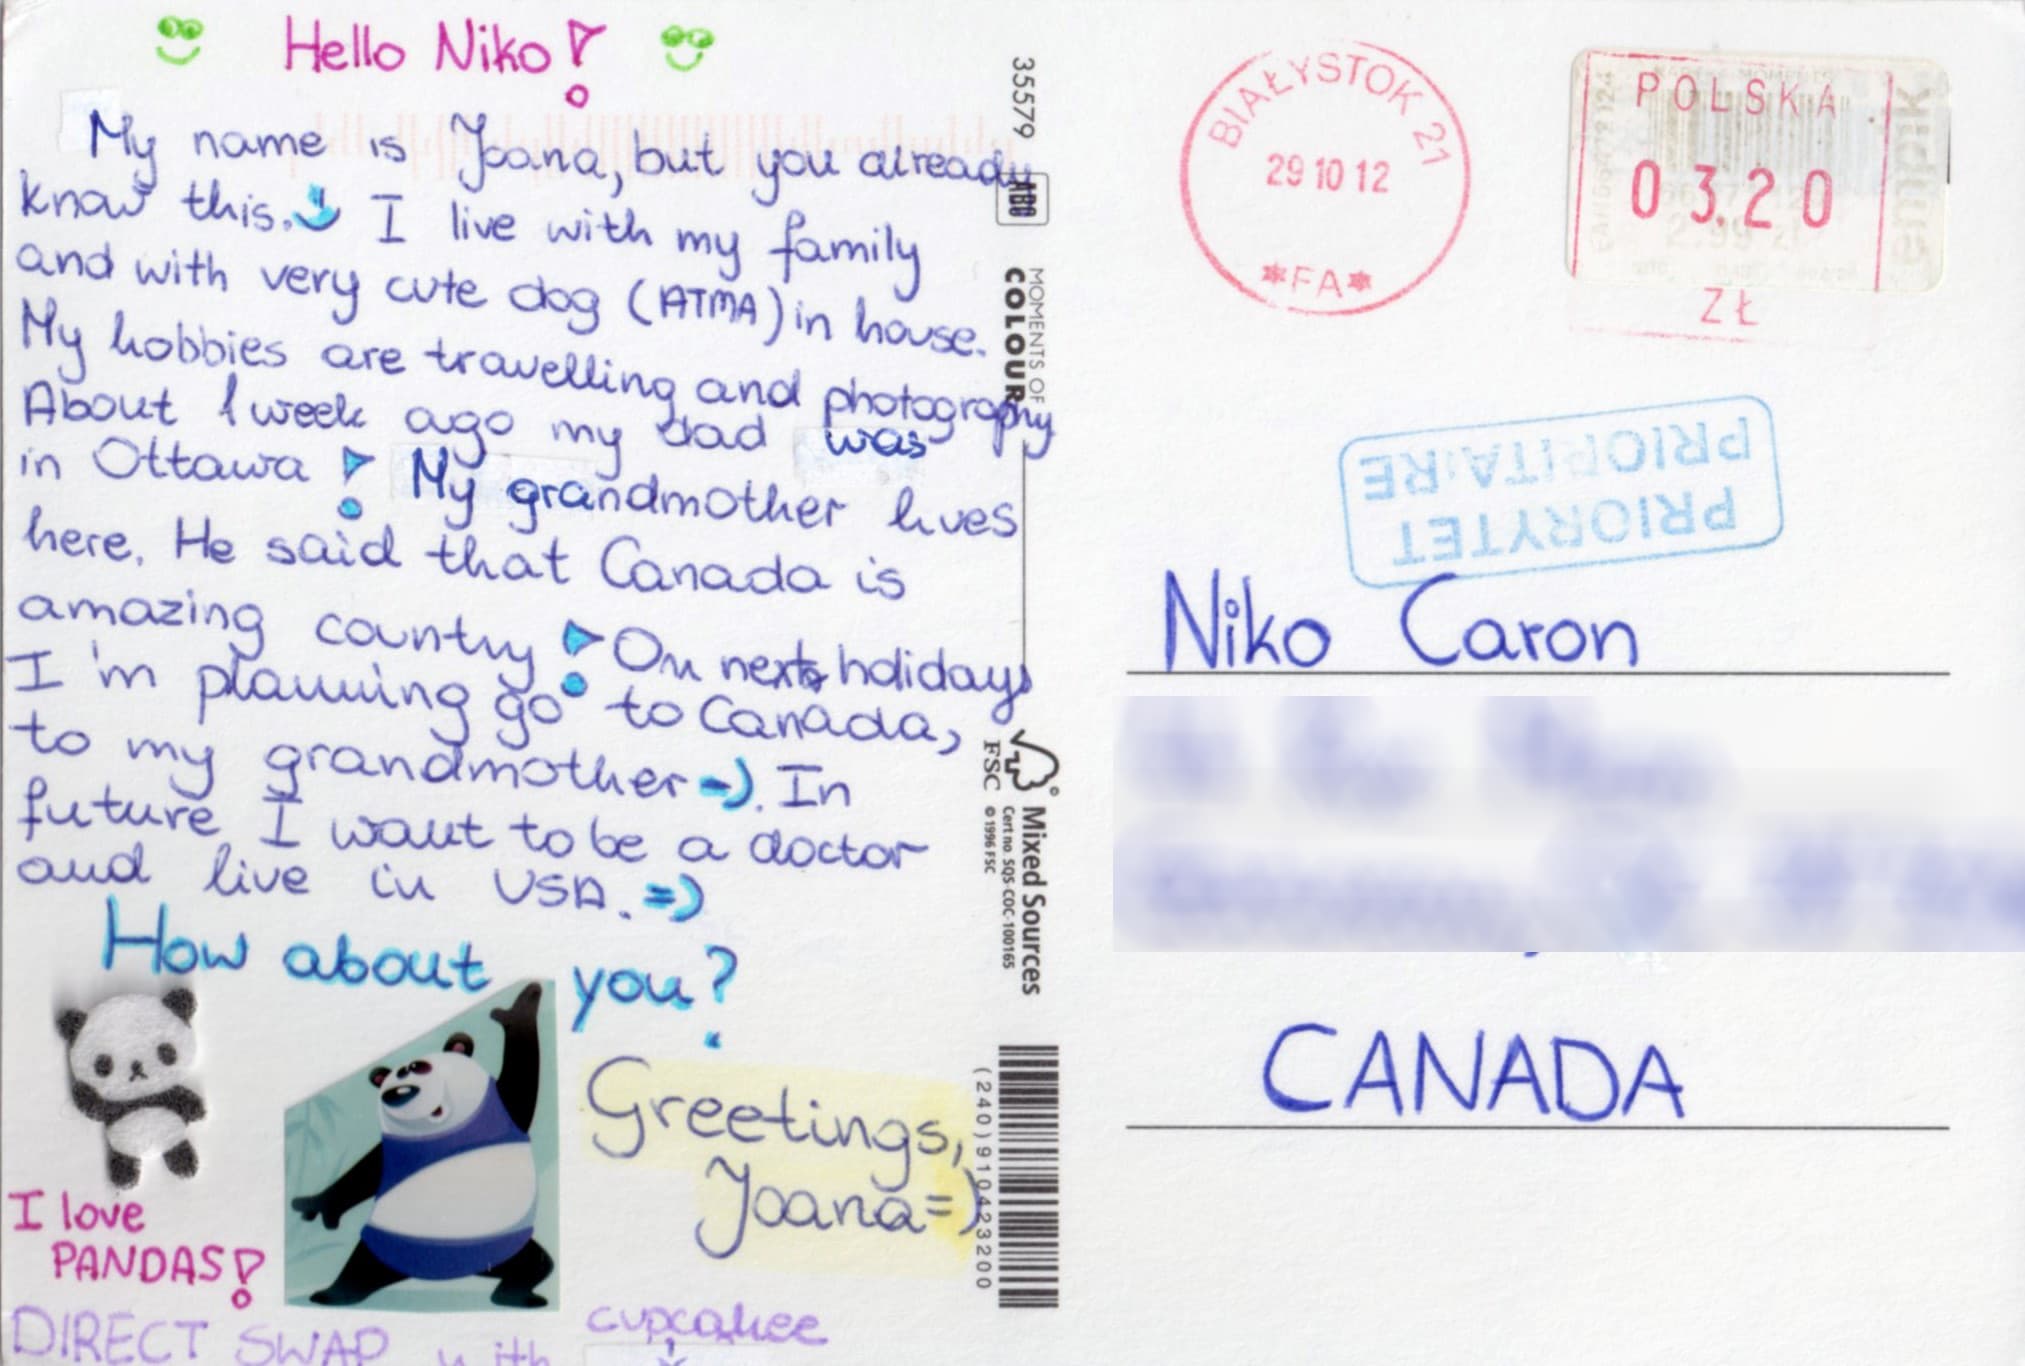 Hello Niko!
My name is Joana, but you already
know this. I live with my family
and with very cute dog (ATMA) in house.
My hobbies are travelling and photography
About 1 week ago my dad was
in Ottawa! My grandmother lives
here. He said that Canada is
amazing country! On next holidays
I'm planning go to Canada,
to my grandmother =). In
future I want to be a doctor
and live in USA. =)
How about you?
Greetings,
Joana =)
I love
PANDAS!
DIRECT SWAP with cupcakee
35579
ABO
MOMENTS OF
COLOUR
FSC
© 1996 FSC
Mixed Sources
Cert no. SQS-COC-100165
(240)910423200
BIAŁYSTOK 21
29 10 12
*FA*
POLSKA
03.20
ZŁ
empik
2.99 zł
PRIORYTET
PRIORITAIRE
Niko Caron
CANADA